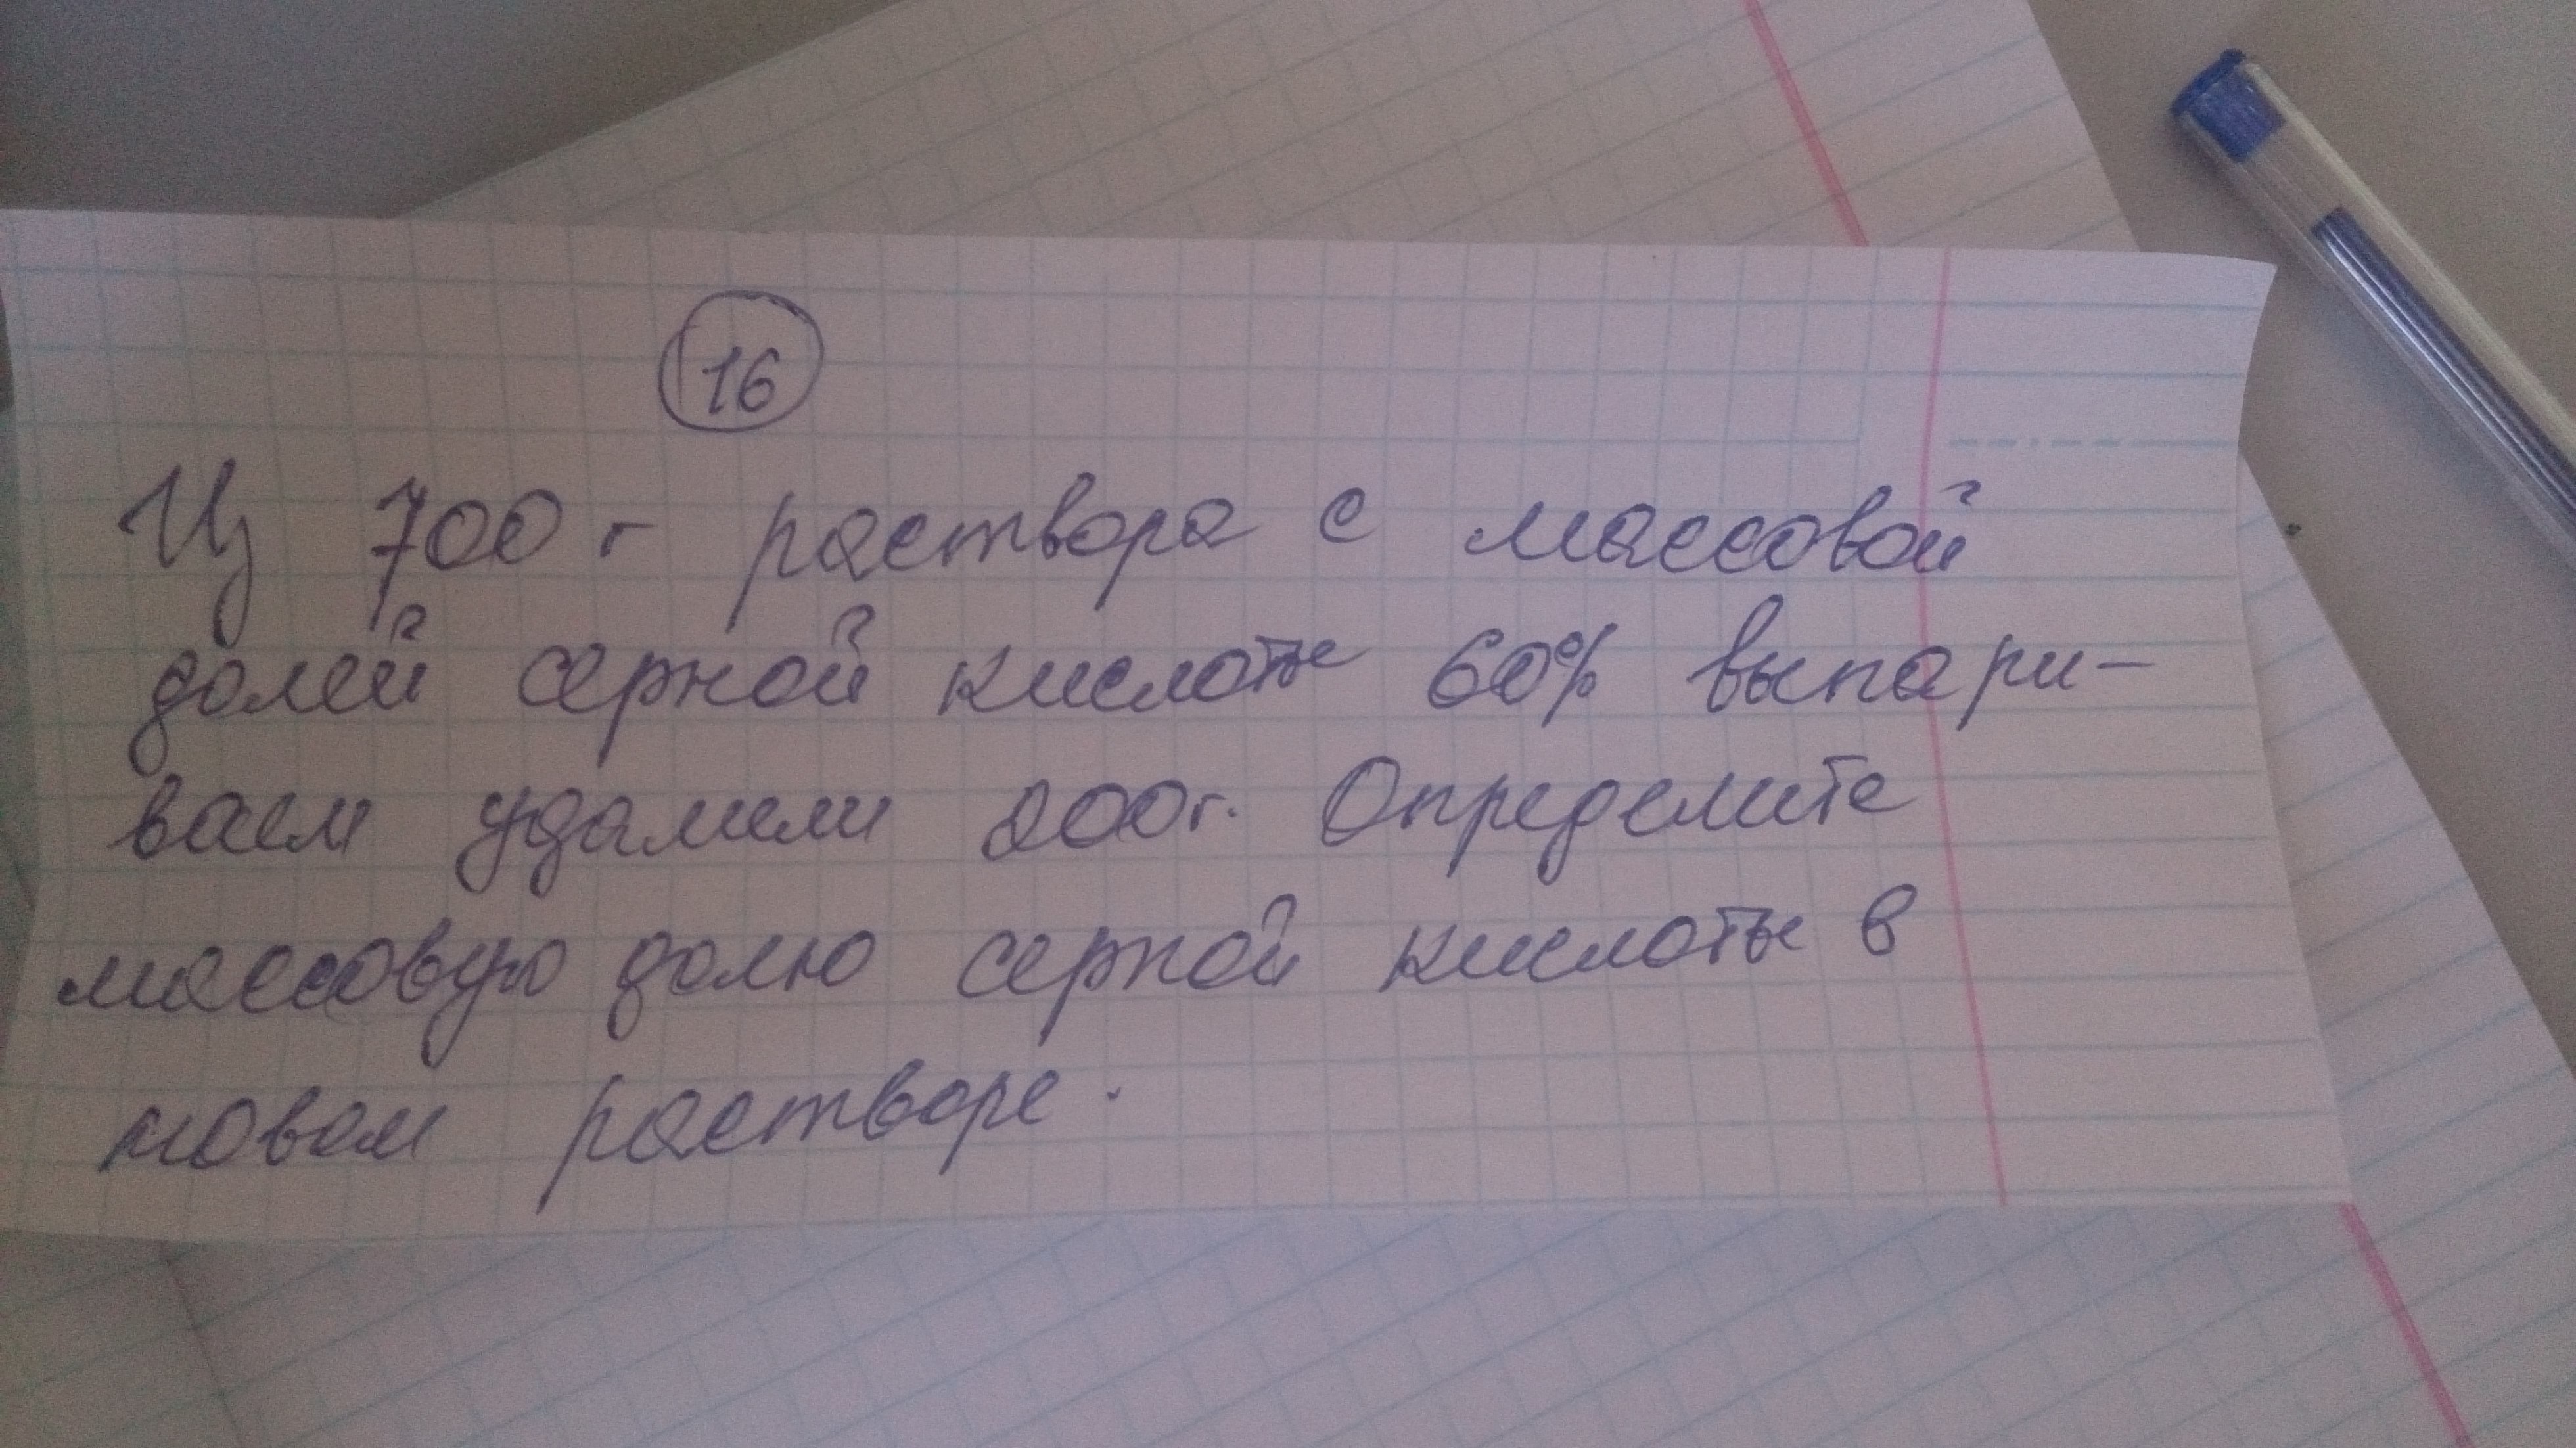 16
Из 700 г раствора с массовой
долей серной кислоты 60% выпари-
ваем удалили 200г. Определите
массовую долю серной кислоты в
новом растворе.